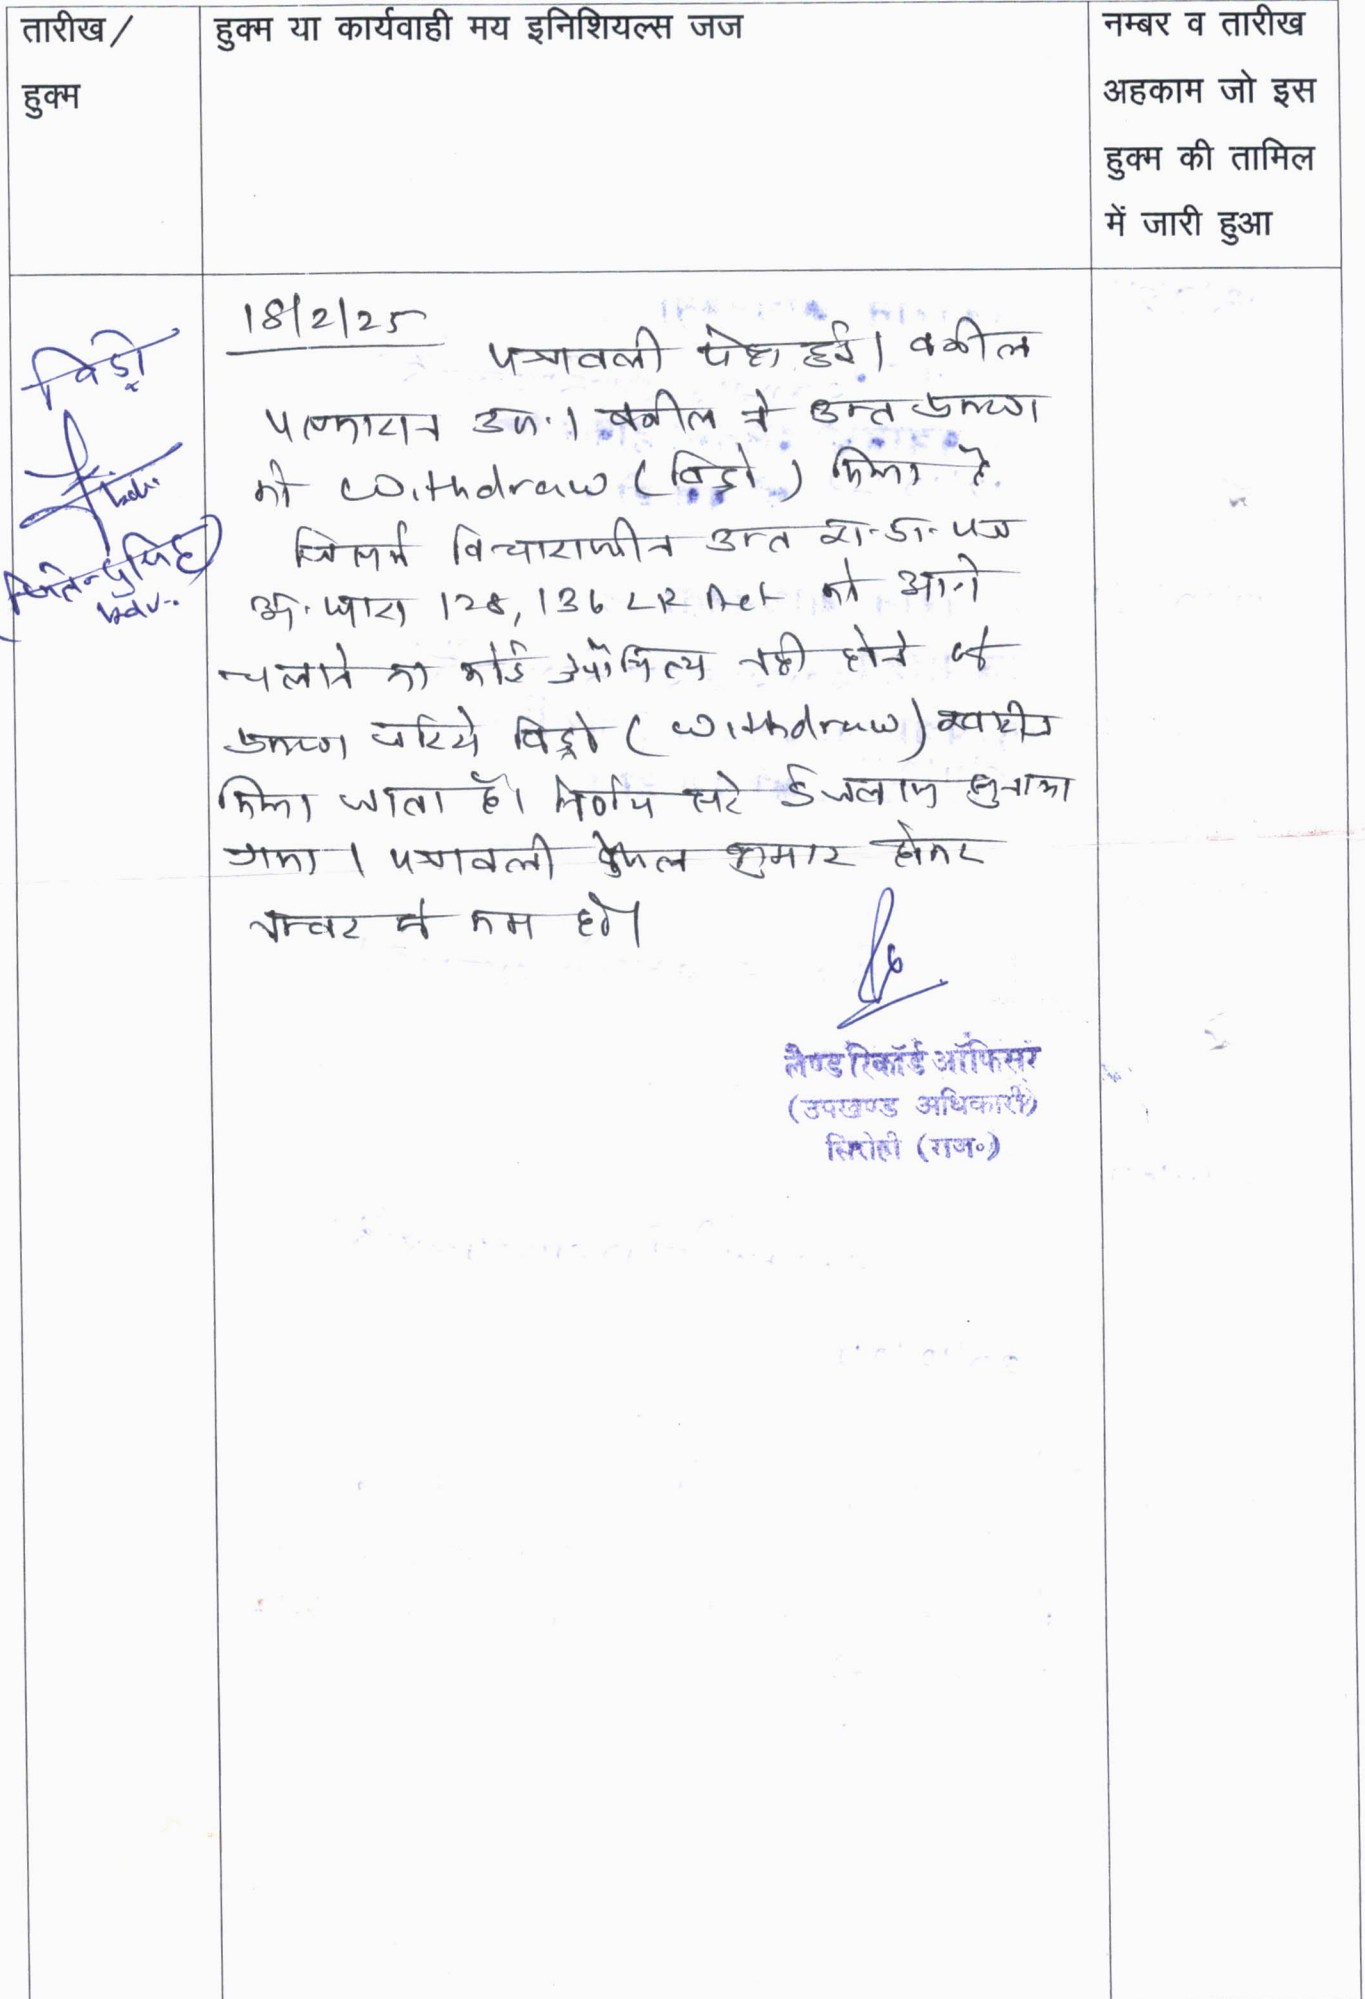 तारीख /
हुक्म
हुक्म या कार्यवाही मय इनिशियल्स जज
नम्बर व तारीख
अहकाम जो इस
हुक्म की तामिल
में जारी हुआ
विड्रो
Adv.
जितेन्द्रसिंह
Adv.
18/2/25
पत्रावली पेश हुई। वकील
पक्षकारान उप.। वकील ने उक्त प्रकरण
को Withdraw (विड्रो) किया है
जिसमें विचाराधीन उक्त प्रा. पत्र
अ. धारा 128, 136 LR Act को आगे
चलाने का कोई औचित्य नही होने से
प्रकरण जरिये विड्रो (Withdraw) खारीज
किया जाता है। निर्णय सरे ईजलास सुनाया
गया। पत्रावली फैसल शुमार होकर
नम्बर से कम हो।
लैण्ड रिकॉर्ड ऑफिसर
(उपखण्ड अधिकारी)
सिरोही (राज०)